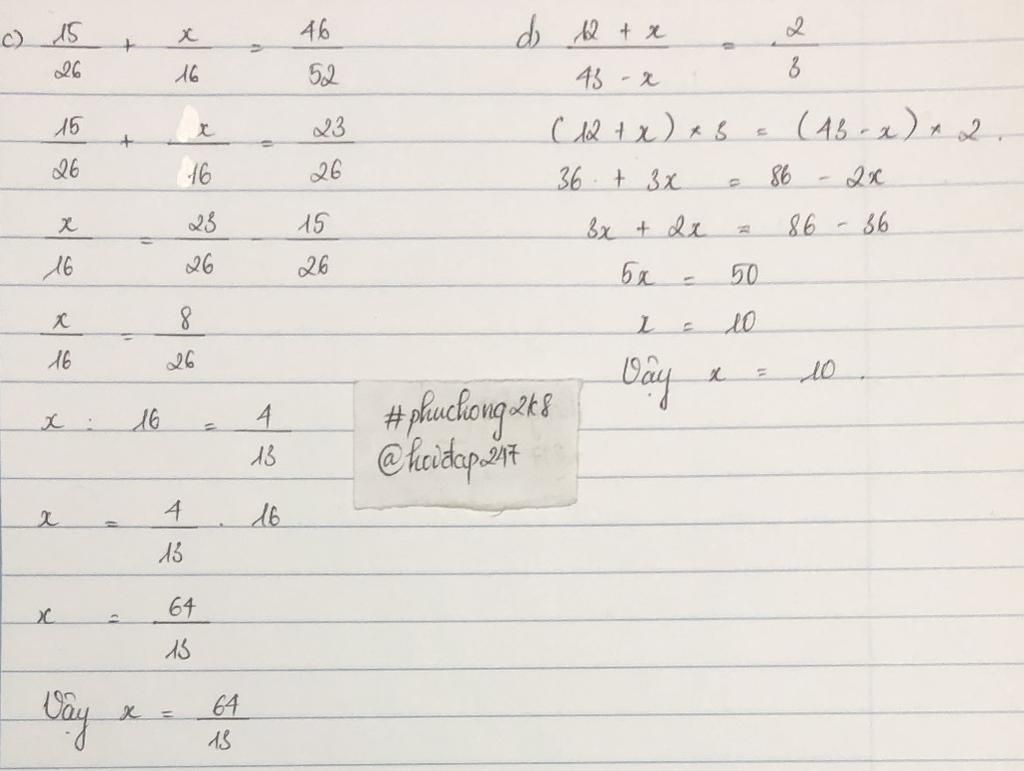 c) 15/26 + x/16 = 46/52
15/26 + x/16 = 23/26
x/16 = 23/26 - 15/26
x/16 = 8/26
x : 16 = 4/13
x = 4/13 . 16
x = 64/13
Vậy x = 64/13
d) 12 + x/43 - x = 2/3
(12 + x) × 3 = (43 - x) × 2.
36 + 3x = 86 - 2x
3x + 2x = 86 - 36
5x = 50
x = 10
Vậy x = 10.
#phuchong2k8
@hoidap247